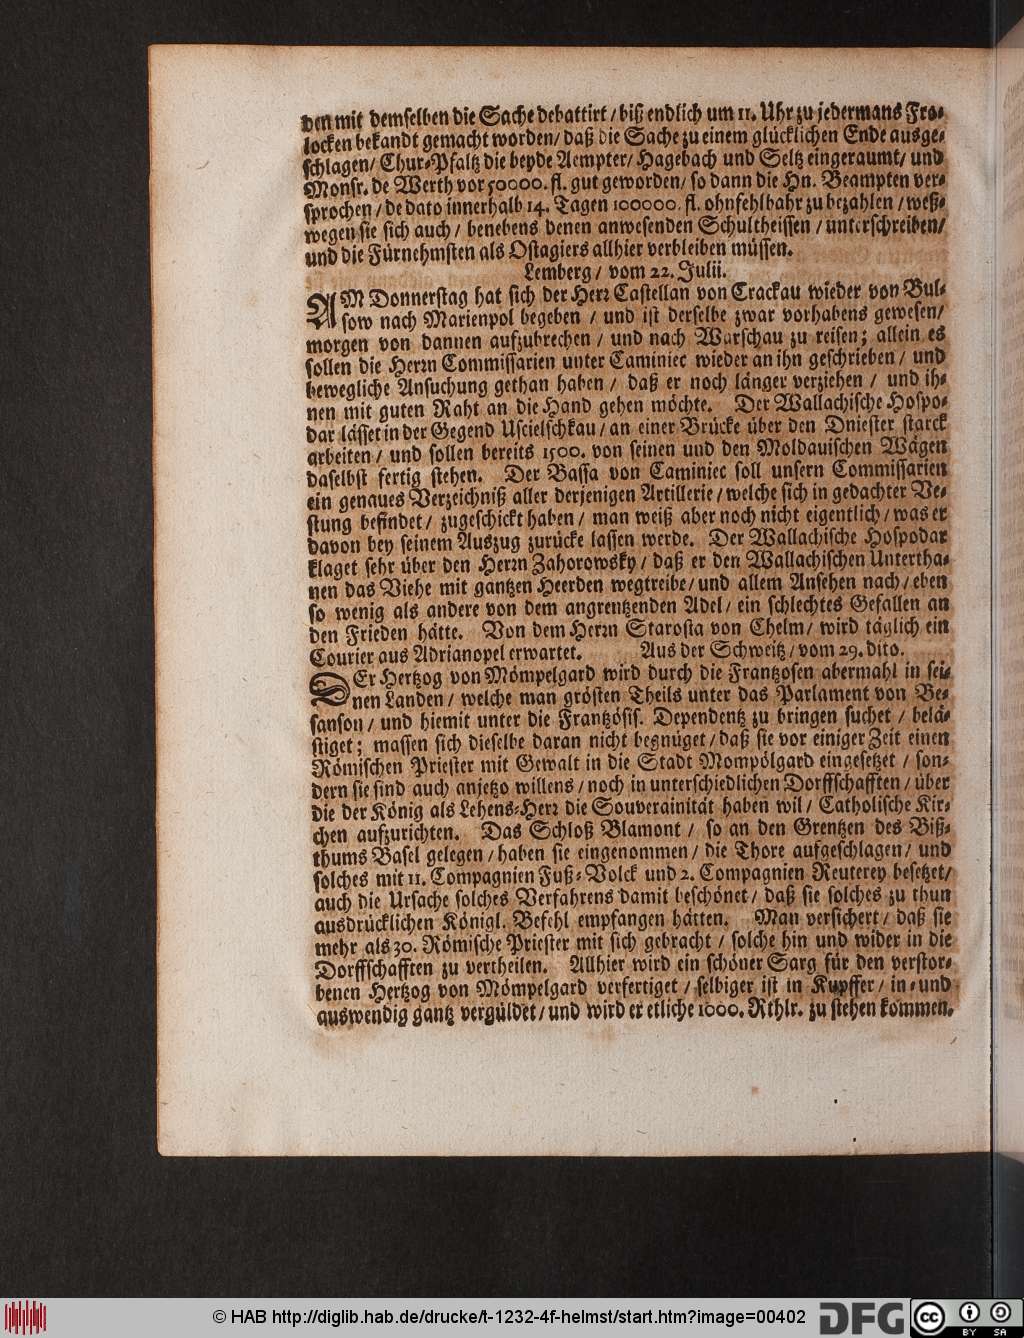 den mit demselben die Sache debattirt / biß endlich um 11. Uhr zu jedermans Fro-
locken bekandt gemacht worden / daß die Sache zu einem glücklichen Ende ausge-
schlagen / Chur-Pfaltz die beyde Aempter / Hagebach und Seltz eingeraumt / und
Monsr. de Werth vor 50000. fl. gut geworden / so dann die Hn. Beampten ver-
sprochen / de dato innerhalb 14. Tagen 100000. fl. ohnfehlbahr zu bezahlen / weß-
wegen sie sich auch / benebens denen anwesenden Schultheissen / unterschreiben /
und die Fürnehmsten als Ostagiers allhier verbleiben müssen.
Lemberg / vom 22. Julii.
AM Donnerstag hat sich der Herr Castellan von Crackau wieder von Bul-
sow nach Marienpol begeben / und ist derselbe zwar vorhabens gewesen /
morgen von dannen aufzubrechen / und nach Warschau zu reisen; allein es
sollen die Herrn Commissarien unter Caminiec wieder an ihn geschrieben / und
bewegliche Ansuchung gethan haben / daß er noch länger verziehen / und ih-
nen mit guten Raht an die Hand gehen möchte. Der Wallachische Hospo-
dar lässet in der Gegend Uscielschkau / an einer Brücke über den Dniester starck
arbeiten / und sollen bereits 1500. von seinen und den Moldauischen Wägen
daselbst fertig stehen. Der Bassa von Caminiec soll unsern Commissarien
ein genaues Verzeichniß aller derjenigen Artillerie / welche sich in gedachter Ve-
stung befindet / zugeschickt haben / man weiß aber noch nicht eigentlich / was er
davon bey seinem Auszug zurücke lassen werde. Der Wallachische Hospodar
klaget sehr über den Herrn Zahorowsky / daß er den Wallachischen Untertha-
nen das Viehe mit gantzen Heerden wegtreibe / und allem Ansehen nach / eben
so wenig als andere von dem angrentzenden Adel / ein schlechtes Gefallen an
den Frieden hätte. Von dem Herrn Starosta von Chelm / wird täglich ein
Courier aus Adrianopel erwartet. Aus der Schweitz / vom 29. dito.
DEr Hertzog von Mömpelgard wird durch die Frantzosen abermahl in sei-
nen Landen / welche man grösten Theils unter das Parlament von Be-
sanson / und hiemit unter die Frantzösis. Dependentz zu bringen suchet / belä-
stiget; massen sich dieselbe daran nicht begnüget / daß sie vor einiger Zeit einen
Römischen Priester mit Gewalt in die Stadt Mompölgard eingesetzet / son-
dern sie sind auch anjetzo willens / noch in unterschiedlichen Dorffschafften / über
die der König als Lehens-Herr die Souverainität haben wil / Catholische Kir-
chen aufzurichten. Das Schloß Blamont / so an den Grentzen des Biß-
thums Basel gelegen / haben sie eingenommen / die Thore aufgeschlagen / und
solches mit 11. Compagnien Fuß-Volck und 2. Compagnien Reuterey besetzet /
auch die Ursache solches Verfahrens damit beschönet / daß sie solches zu thun
ausdrücklichen Königl. Befehl empfangen hätten. Man versichert / daß sie
mehr als 30. Römische Priester mit sich gebracht / solche hin und wider in die
Dorffschafften zu vertheilen. Allhier wird ein schöner Sarg für den verstor-
benen Hertzog von Mömpelgard verfertiget / selbiger ist in Kupffer / in- und
auswendig gantz vergüldet / und wird er etliche 1000. Rthlr. zu stehen kommen.
© HAB http://diglib.hab.de/drucke/t-1232-4f-helmst/start.htm?image=00402
DFG
cc BY SA